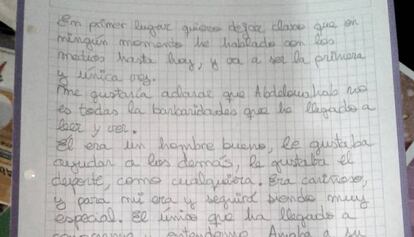 En primer lugar quiero dejar claro que en
ningún momento he hablado con los
medios hasta hoy, y va a ser la primera
y única vez.
Me gustaría aclarar que Abdelouahab no
es todas la barbaridades que he llegado a
leer y ver.
Él era un hombre bueno, le gustaba
ayudar a los demás, le gustaba el
deporte, como cualquiera. Era cariñoso,
y para mi era y seguirá siendo muy
especial. El único que ha llegado a